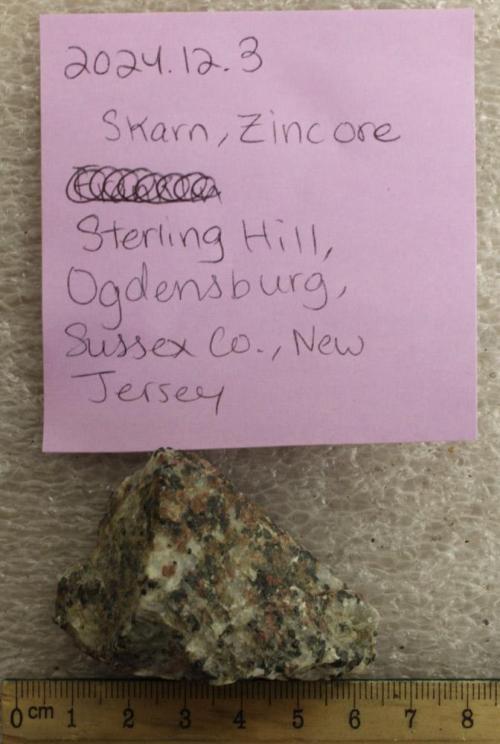 2024.12.3
Skarn, Zinc ore
Sterling Hill,
Ogdensburg,
Sussex Co., New
Jersey
0 cm 1 2 3 4 5 6 7 8